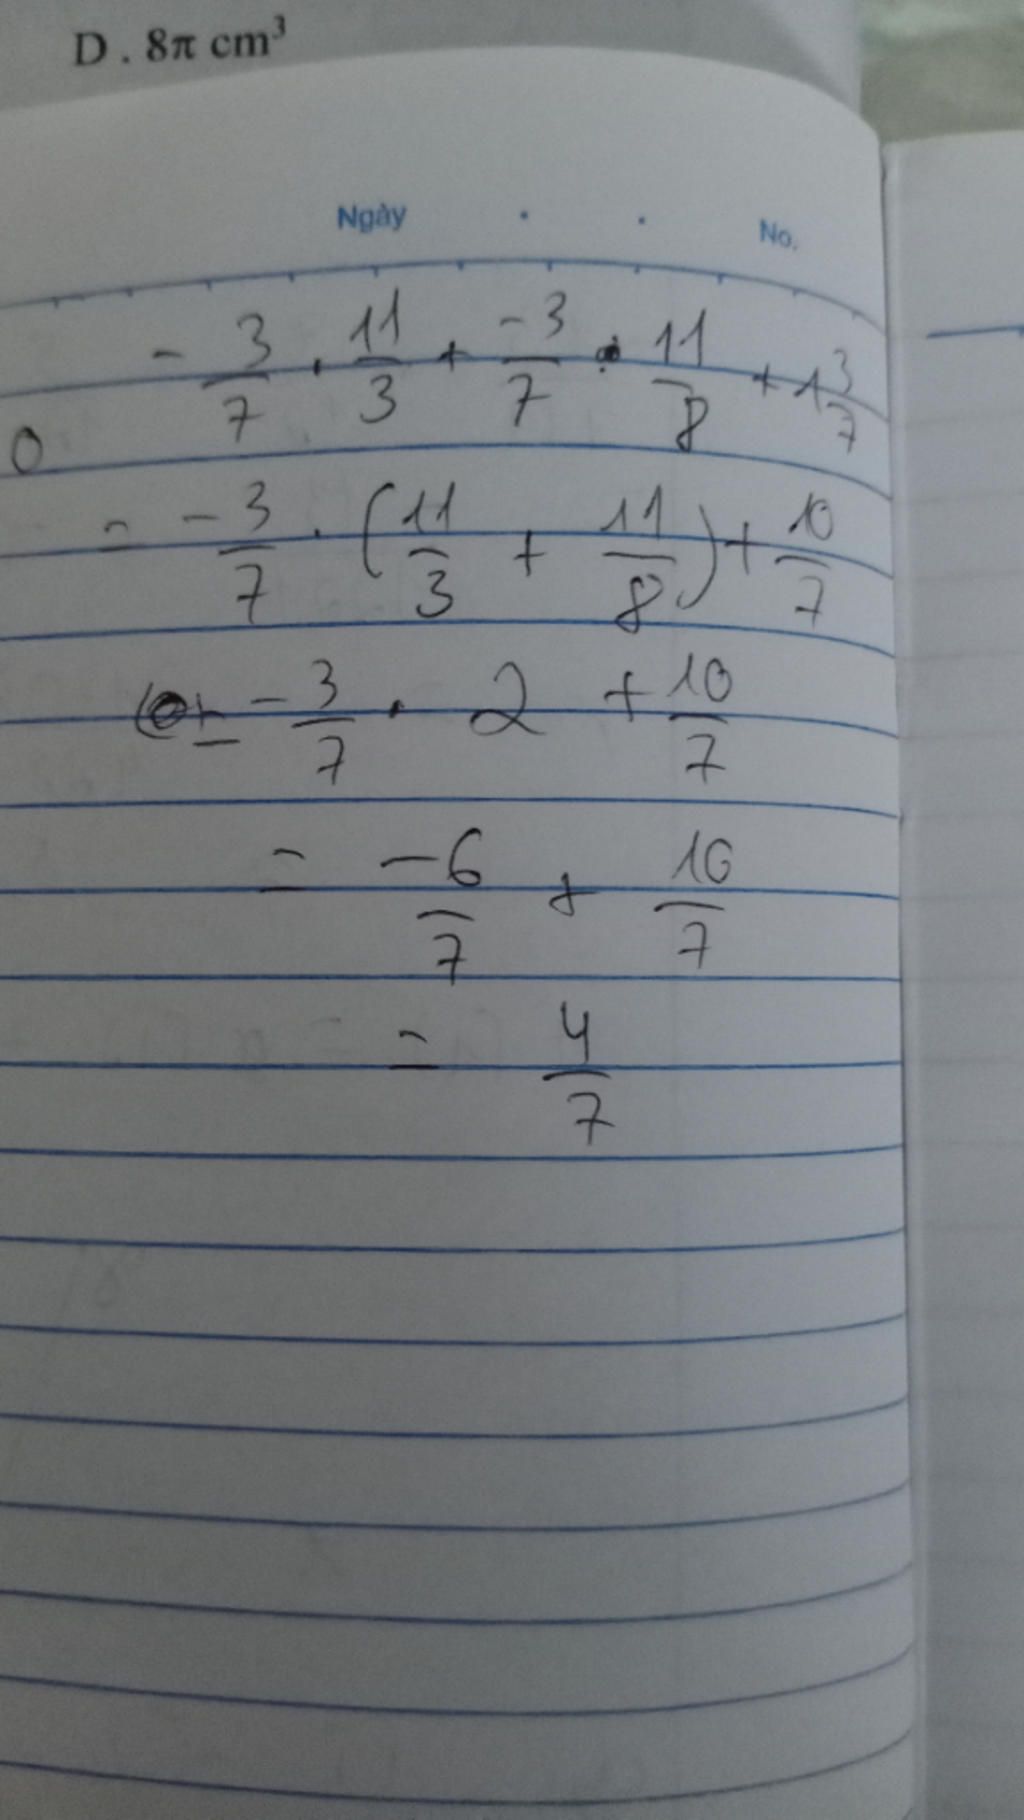 D . 8π cm³
Ngày . . No.
- 3/7 . 11/3 + -3/7 . 11/8 + 1 3/7
0
= - 3/7 . (11/3 + 11/8) + 10/7
= - 3/7 . 2 + 10/7
= -6/7 + 10/7
= 4/7